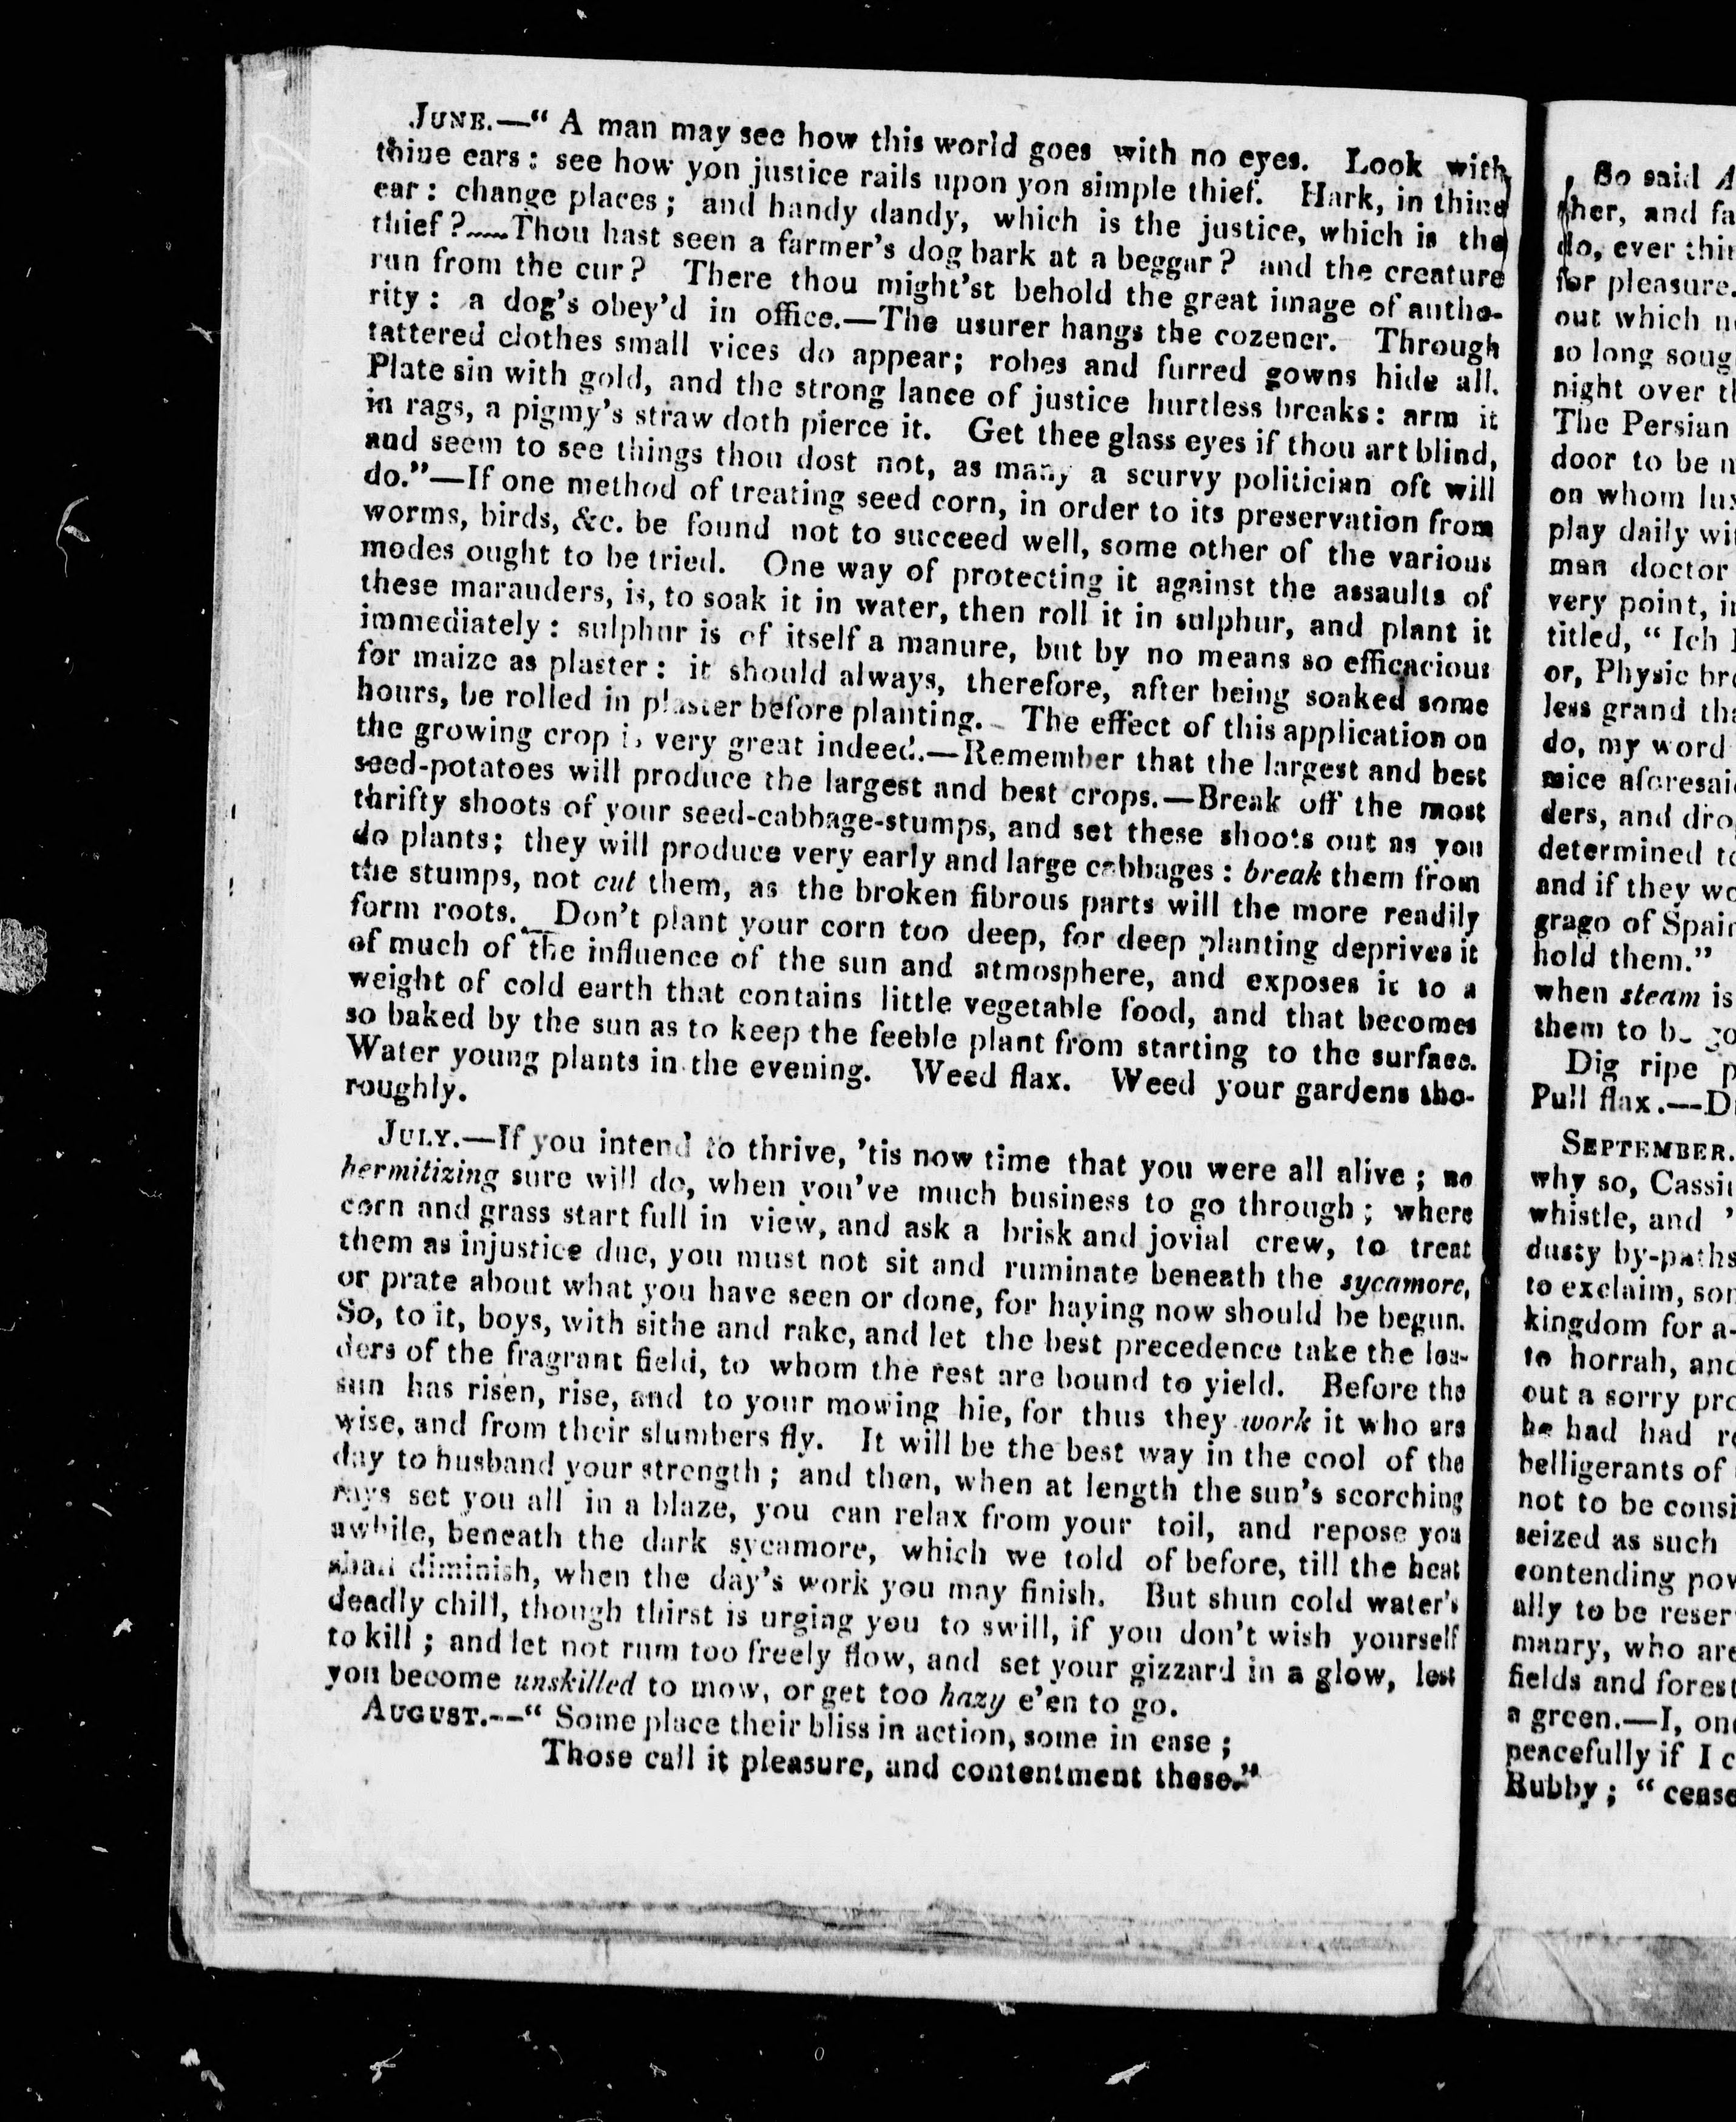 JUNE.—“ A man may see how this world goes with no eyes. Look with
thine ears: see how yon justice rails upon yon simple thief. Hark, in thine
ear: change places; and handy dandy, which is the justice, which is the
thief?——Thou hast seen a farmer's dog bark at a beggar? and the creature
run from the cur? There thou might'st behold the great image of autho-
rity: a dog's obey'd in office.—The usurer hangs the cozener. Through
tattered clothes small vices do appear; robes and furred gowns hide all.
Plate sin with gold, and the strong lance of justice hurtless breaks: arm it
in rags, a pigmy's straw doth pierce it. Get thee glass eyes if thou art blind,
and seem to see things thou dost not, as many a scurvy politician oft will
do.”—If one method of treating seed corn, in order to its preservation from
worms, birds, &c. be found not to succeed well, some other of the various
modes ought to be tried. One way of protecting it against the assaults of
these marauders, is, to soak it in water, then roll it in sulphur, and plant it
immediately: sulphur is of itself a manure, but by no means so efficacious
for maize as plaster: it should always, therefore, after being soaked some
hours, be rolled in plaster before planting. The effect of this application on
the growing crop is very great indeed.—Remember that the largest and best
seed-potatoes will produce the largest and best crops.—Break off the most
thrifty shoots of your seed-cabbage-stumps, and set these shoots out as you
do plants; they will produce very early and large cabbages: break them from
the stumps, not cut them, as the broken fibrous parts will the more readily
form roots. Don't plant your corn too deep, for deep planting deprives it
of much of the influence of the sun and atmosphere, and exposes it to a
weight of cold earth that contains little vegetable food, and that becomes
so baked by the sun as to keep the feeble plant from starting to the surface.
Water young plants in the evening. Weed flax. Weed your gardens tho-
roughly.
JULY.—If you intend to thrive, 'tis now time that you were all alive; no
hermitizing sure will do, when you've much business to go through; where
corn and grass start full in view, and ask a brisk and jovial crew, to treat
them as injustice due, you must not sit and ruminate beneath the sycamore,
or prate about what you have seen or done, for haying now should be begun.
So, to it, boys, with sithe and rake, and let the best precedence take the lea-
ders of the fragrant field, to whom the rest are bound to yield. Before the
sun has risen, rise, and to your mowing hie, for thus they work it who are
wise, and from their slumbers fly. It will be the best way in the cool of the
day to husband your strength; and then, when at length the sun's scorching
rays set you all in a blaze, you can relax from your toil, and repose you
awhile, beneath the dark sycamore, which we told of before, till the heat
shall diminish, when the day's work you may finish. But shun cold water's
deadly chill, though thirst is urging you to swill, if you don't wish yourself
to kill; and let not rum too freely flow, and set your gizzard in a glow, lest
you become unskilled to mow, or get too hazy e'en to go.
AUGUST.—“ Some place their bliss in action, some in ease;
Those call it pleasure, and contentment these.”
So said
ther, and
do, ever
for pleasure.
out which
so long
night over
The Persian
door to be
on whom
play daily
man doctor
very point,
titled, “ Ich
or, Physic
less grand
do, my word
mice
ders, and
determined
and if they
grago of
hold them.”
when steam is
them to
Dig ripe
Pull flax.—
SEPTEMBER.
why so,
whistle, and
dusty
to exclaim,
kingdom for a-
to horrah,
out a sorry
he had had
belligerants of
not to be
seized as such
contending
ally to be
manry, who
fields and
a green.—I,
peacefully if I
Rubby; “